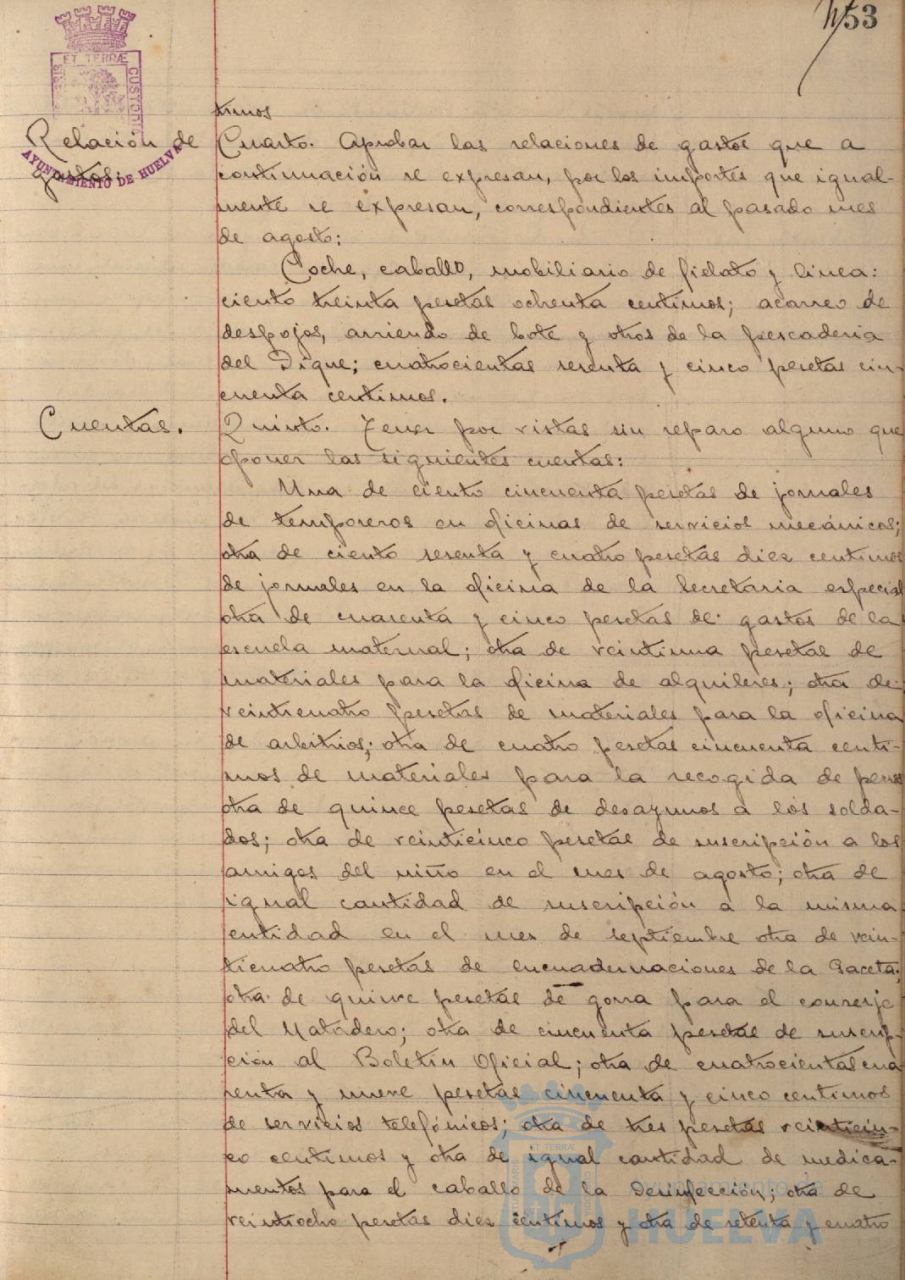 53
ET TERRÆ
CUSTODIA
AYUNTAMIENTO DE HUELVA
timos
Relación de
gastos.
Cuarto. Aprobar las relaciones de gastos que a
continuación se expresan, por los importes que igual-
mente se expresan, correspondientes al pasado mes
de agosto:
Coche, caballo, mobiliario de fielato y linea:
ciento treinta pesetas ochenta centimos; acarreo de
despojos, arriendo de bote y otros de la pescaderia
del Dique; cuatrocientas sesenta y cinco pesetas cin-
cuenta centimos.
Cuentas.
Quinto. Tener por vistas sin reparo alguno que
oponer las siguientes cuentas:
Una de ciento cincuenta pesetas de jornales
de temporeros en oficinas de servicios mecánicos;
otra de ciento sesenta y cuatro pesetas diez centimos
de jornales en la oficina de la Secretaria especial
otra de cuarenta y cinco pesetas de gastos de la
escuela maternal; otra de veintiuna pesetas de
materiales para la oficina de alquileres; otra de
veinticuatro pesetas de materiales para la oficina
de arbitrios; otra de cuatro pesetas cincuenta centi-
mos de materiales para la recogida de perros
otra de quince pesetas de desayunos a los solda-
dos; otra de veinticinco pesetas de suscripción a los
amigos del niño en el mes de agosto; otra de
igual cantidad de suscripción a la misma
entidad en el mes de septiembre otra de vein-
ticuatro pesetas de encuadernaciones de la Gaceta;
otra de quince pesetas de gorra para el conserje
del Matadero; otra de cincuenta pesetas de suscrip-
ción al Boletín Oficial; otra de cuatrocientas cua
renta y nueve pesetas cincuenta y cinco centimos
de servicios telefónicos; otra de tres pesetas veinticin-
co centimos y otra de igual cantidad de medica-
mentos para el caballo de la Desinfección; otra de
veintiocho pesetas diez centimos y otra de setenta y cuatro
Ayuntamiento de
HUELVA